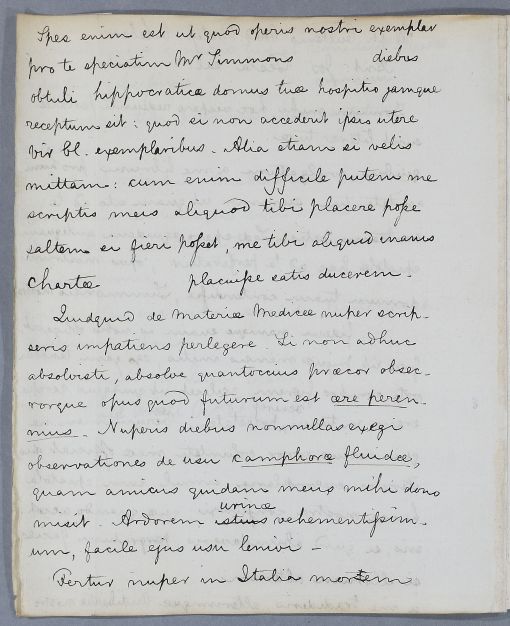 Spes enim est ut quod operis nostri exemplar
pro te speciatim Mr Simmons diebus
obtuli hippocraticæ domus tuæ hospitio jamque
receptum sit: quod si non accederit ipsis utere
Vir Cl. exemplaribus. Alia etiam si velis
mittam: cum enim difficile putem me
scriptis meis aliquod tibi placere posse
saltem ei fieri posset, me tibi aliquid inanis
Chartæ placuisse satis ducerem.
Quidquid de Materiæ Medicæ nuper scrip-
seris impatiens perlegere. Si non adhuc
absolvisti, absolve quantocius præcor obsec-
rorque opus quod futurum est ære peren-
nius. Nuperis diebus nonnullas exegi
observationes de usu camphoræ fluidæ,
quam amicus quidam meus mihi dono
misit. Ardorem istius urinæ vehementissim-
um, facile ejus usu lenivi –
Fertur nuper in Italia mortem